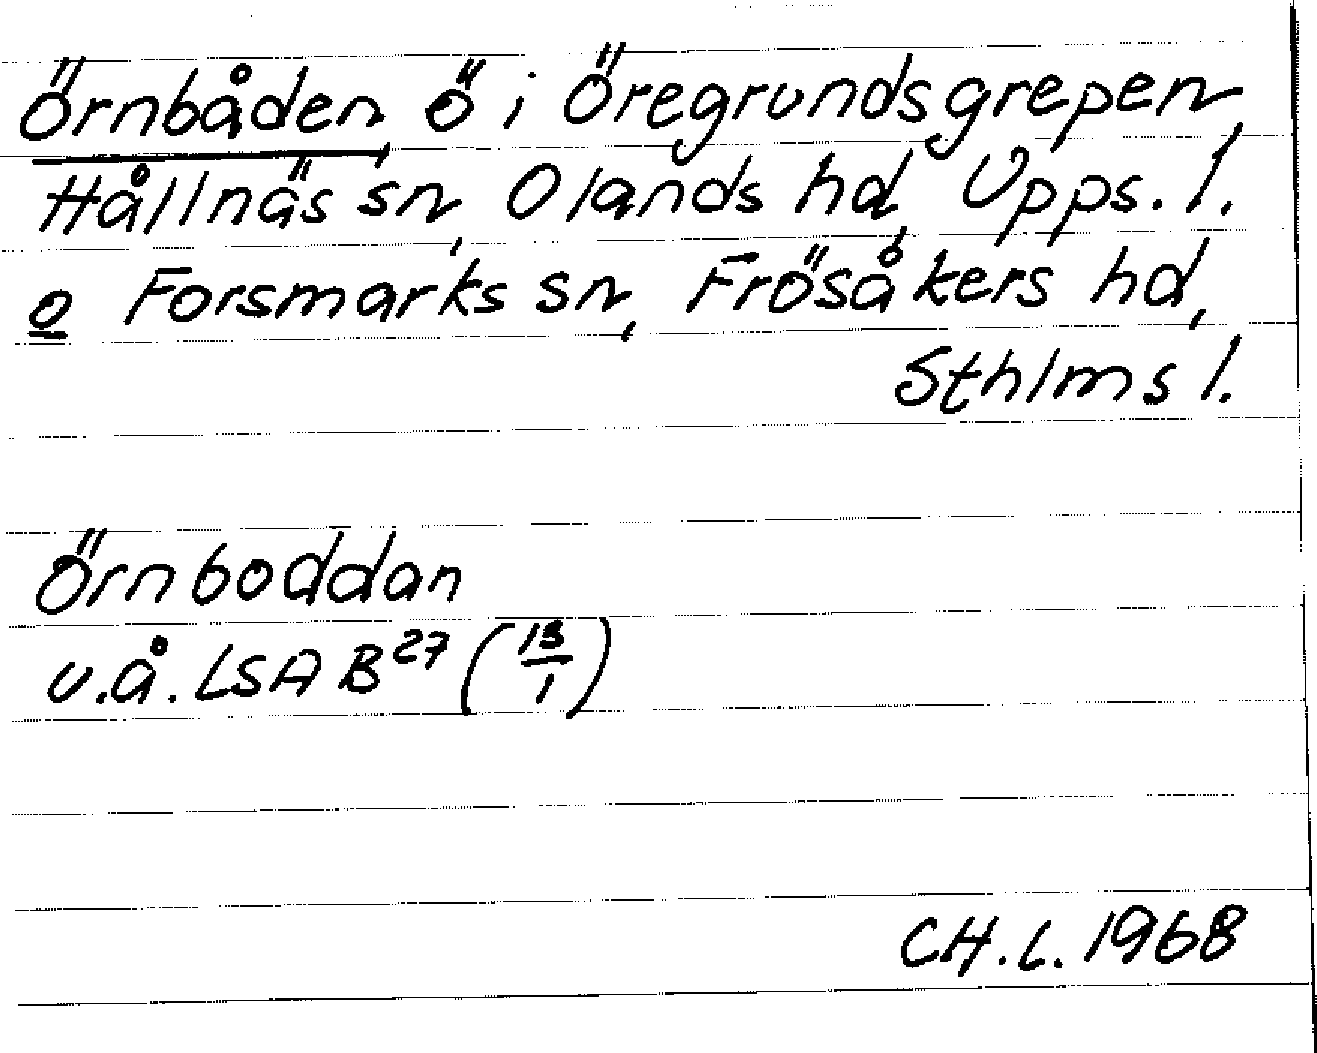 Örnbåden, ö i Öregrundsgrepen,
Hållnäs sn, Olands hd, Upps. l.
o Forsmarks sn, Frösåkers hd,
Sthlms l.
Örnboddan
u.å. LSA B²⁷ (13/1)
CH.L. 1968